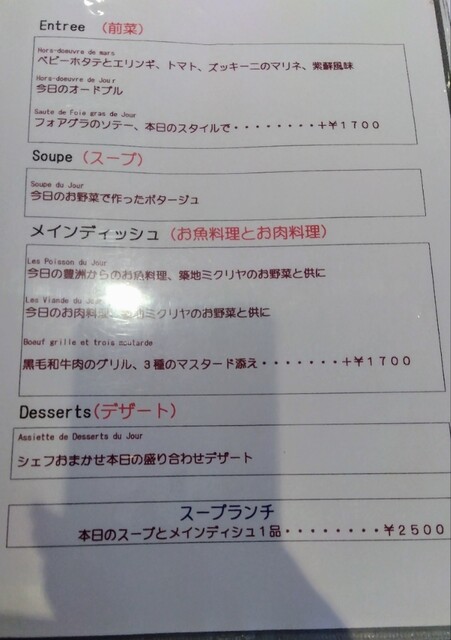 Entree (前菜)
Hors-doeuvre de mars
ベビーホタテとエリンギ、トマト、ズッキーニのマリネ、紫蘇風味
Hors-doeuvre de Jour
今日のオードブル
Saute de Foie gras de Jour
フォアグラのソテー、本日のスタイルで・・・・・・・・＋￥１７００
Soupe (スープ)
Soupe du Jour
今日のお野菜で作ったポタージュ
メインディッシュ (お魚料理とお肉料理)
Les Poisson du Jour
今日の豊洲からのお魚料理、築地ミクリヤのお野菜と供に
Les Viande du Jour
今日のお肉料理、築地ミクリヤのお野菜と供に
Boeuf grille et trois moutarde
黒毛和牛肉のグリル、３種のマスタード添え・・・・・・・＋￥１７００
Desserts(デザート)
Assiette de Desserts du Jour
シェフおまかせ本日の盛り合わせデザート
スープランチ
本日のスープとメインディシュ１品・・・・・・・・￥２５００